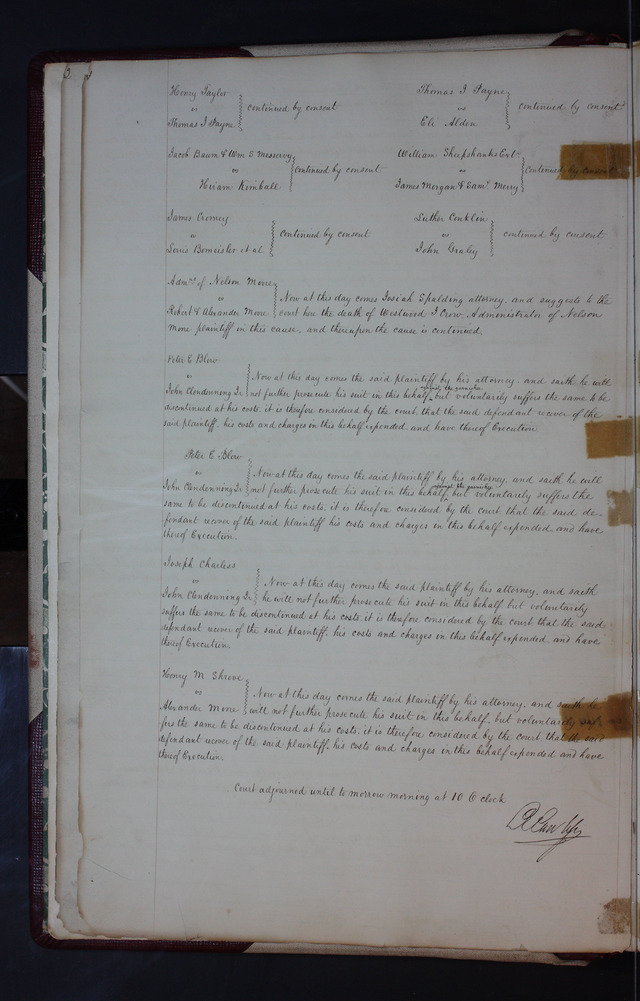 2
Henry Taylor
vs continued by consent
Thomas J Payne
Thomas J Payne
vs continued by consent
Eli Alden
Jacob Baum & Wm S Messervy
vs continued by consent
Hiram Kimball
William Sheepshanks Ext
vs continued by consent
James Morgan & Saml Merry
James Cromey
vs continued by consent
Louis Bomeister et al
Luther Conklin
vs continued by consent
John Graley
Admr of Nelson Moore
vs Now at this day comes Josiah Spalding attorney, and suggests to the
Robert & Alexander Moore court here the death of Westwood J Crow, Administrator of Nelson
Moore plaintiff in this cause, and thereupon the cause is continued
Peter E Blow
vs Now at this day comes the said plaintiff by his attorney, and saith he will
John Clendenning Jr not further prosecute his suit in this behalf against the garnishee but voluntarily suffers the same to be
discontinued at his costs, it is therefore considered by the court, that the said defendant recover of the
said plaintiff, his costs and charges in this behalf expended, and have thereof Execution.
Peter E Blow
vs Now at this day comes the said plaintiff by his attorney, and saith he will
John Clendenning Jr not further prosecute his suit in this behalf, against the garnishee but voluntarily suffers the
same to be discontinued at his costs, it is therefore considered by the court that the said de-
fendant recover of the said plaintiff his costs and charges in this behalf expended and have
thereof Execution.
Joseph Charless
vs Now at this day comes the said plaintiff by his attorney, and saith
John Clendenning Jr he will not further prosecute his suit in this behalf but voluntarily
suffers the same to be discontinued at his costs, it is therefore considered by the court that the said
defendant recover of the said plaintiff, his costs and charges in this behalf expended and have
thereof Execution.
Henry M Shreve
vs Now at this day comes the said plaintiff by his attorney, and saith he
Alexander Moore will not further prosecute his suit in this behalf, but voluntarily suf-
fers the same to be discontinued at his costs, it is therefore considered by the court, that the said
defendant recover of the said plaintiff, his costs and charges in this behalf expended and have
thereof Execution.
Court adjourned until to morrow morning at 10 O clock